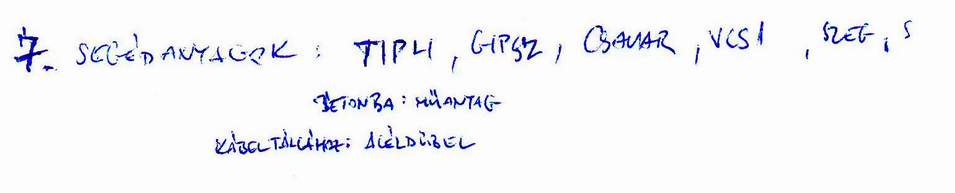 7. SEGÉDANYAGOK : TIPLI, GIPSZ, CSAVAR, , SZEG, S
BETONBA: MŰANYAG
KÁBELTÁLCÁHOZ: ACÉLDÜBEL